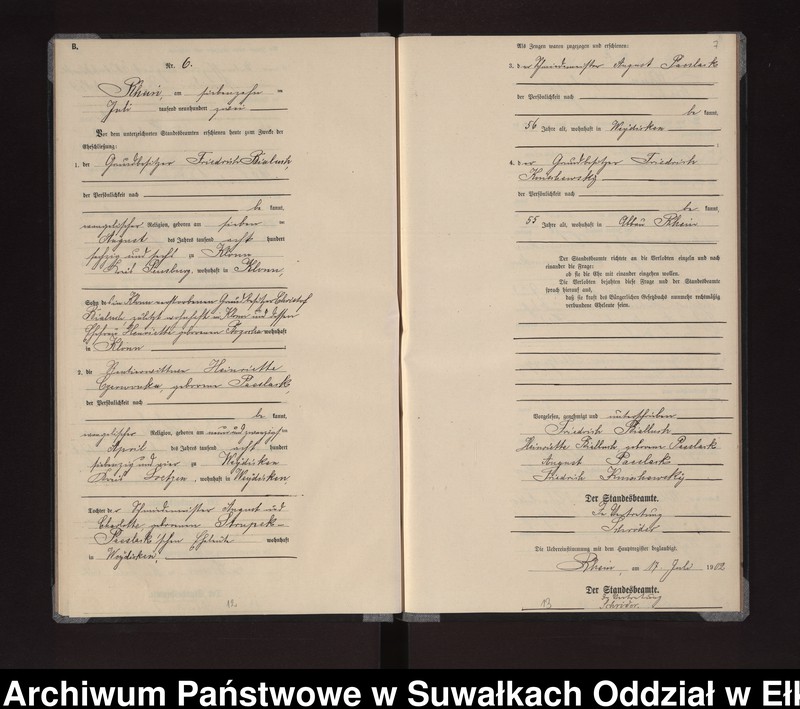 B.
Nr. 6.
Rhein, am siebenzehn ten
Juli tausend neunhundert zwei
Vor dem unterzeichneten Standesbeamten erschienen heute zum Zwecke der
Eheschließung:
1. der Grundbesitzer Friedrich
der Persönlichkeit nach
be kannt,
evangelischer Religion, geboren am sieben ten
August des Jahres tausend acht hundert
sechzig und sechs zu Klonn
Kreis Sensburg, wohnhaft in Klonn,
Sohn des in Klonn verstorbenen Grundbesitzer Christoph
zuletzt wohnhaft in Klonn und dessen
Ehefrau Henriette geborenen wohnhaft
in Klonn
2. die Rentierwittwe Heinriette
geborene Passlack,
der Persönlichkeit nach
be kannt,
evangelischer Religion, geboren am neun und zwanzigsten
April des Jahres tausend acht hundert
siebenzig und vier zu Weydicken
Kreis Loetzen, wohnhaft in Weydicken
Tochter der Schmiedemeister August und
Charlotte, geborenen
Passlack'schen Eheleute wohnhaft
in Weydicken,
12
7
Als Zeugen waren zugezogen und erschienen:
3. der Schmiedemeister August Passlack
der Persönlichkeit nach
be kannt,
56 Jahre alt, wohnhaft in Weydicken
;
4. der Grundbesitzer Friedrich
der Persönlichkeit nach
be kannt,
55 Jahre alt, wohnhaft in Abbau Rhein
Der Standesbeamte richtete an die Verlobten einzeln und nach
einander die Frage:
ob sie die Ehe mit einander eingehen wollen.
Die Verlobten bejahten diese Frage und der Standesbeamte
sprach hierauf aus,
daß sie kraft des Bürgerlichen Gesetzbuchs nunmehr rechtmäßig
verbundene Eheleute seien.
Vorgelesen, genehmigt und unterschrieben
Friedrich
Heinriette geborene Passlack
August Passlack
Friedrich
Der Standesbeamte.
In Vertretung
Schröder
Die Uebereinstimmung mit dem Hauptregister beglaubigt.
Rhein, am 17. Juli 1902
Der Standesbeamte.
In Vertretung
Schröder.
13
Archiwum Państwowe w Suwałkach Oddział w Ełk